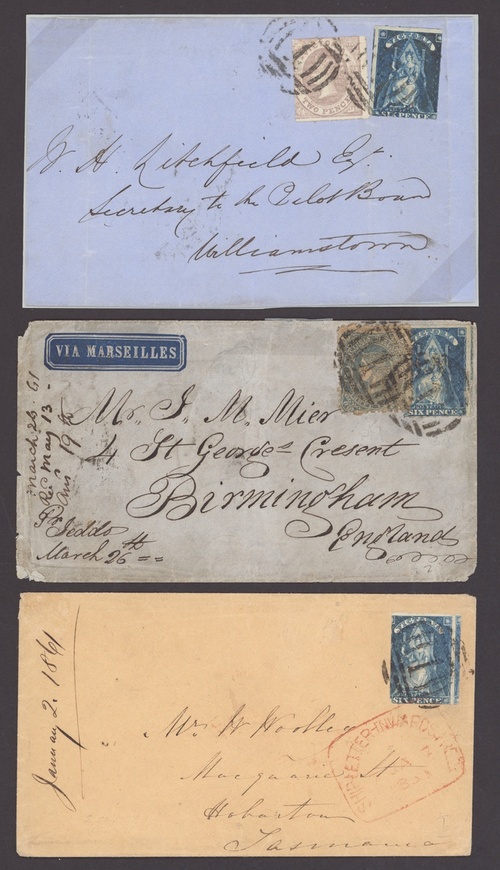 VICTORIA
TWO PENCE
SIX PENCE
W. H. Litchfield Esqr.
Secretary to the Pilot Board
Williamstown
VIA MARSEILLES
VICTORIA
SIX PENCE
March 26. 61
Rec May 13
Ans 19th
Mr. J. M. Mier
4 St George's Cresent
Birmingham
England
Pr Jeddo
March 26th
VICTORIA
SIX PENCE
January 2. 1861
Mr W Woolley
Macquarie St
Hobarton
Tasmania
SHIP LETTER INWARDS FREE